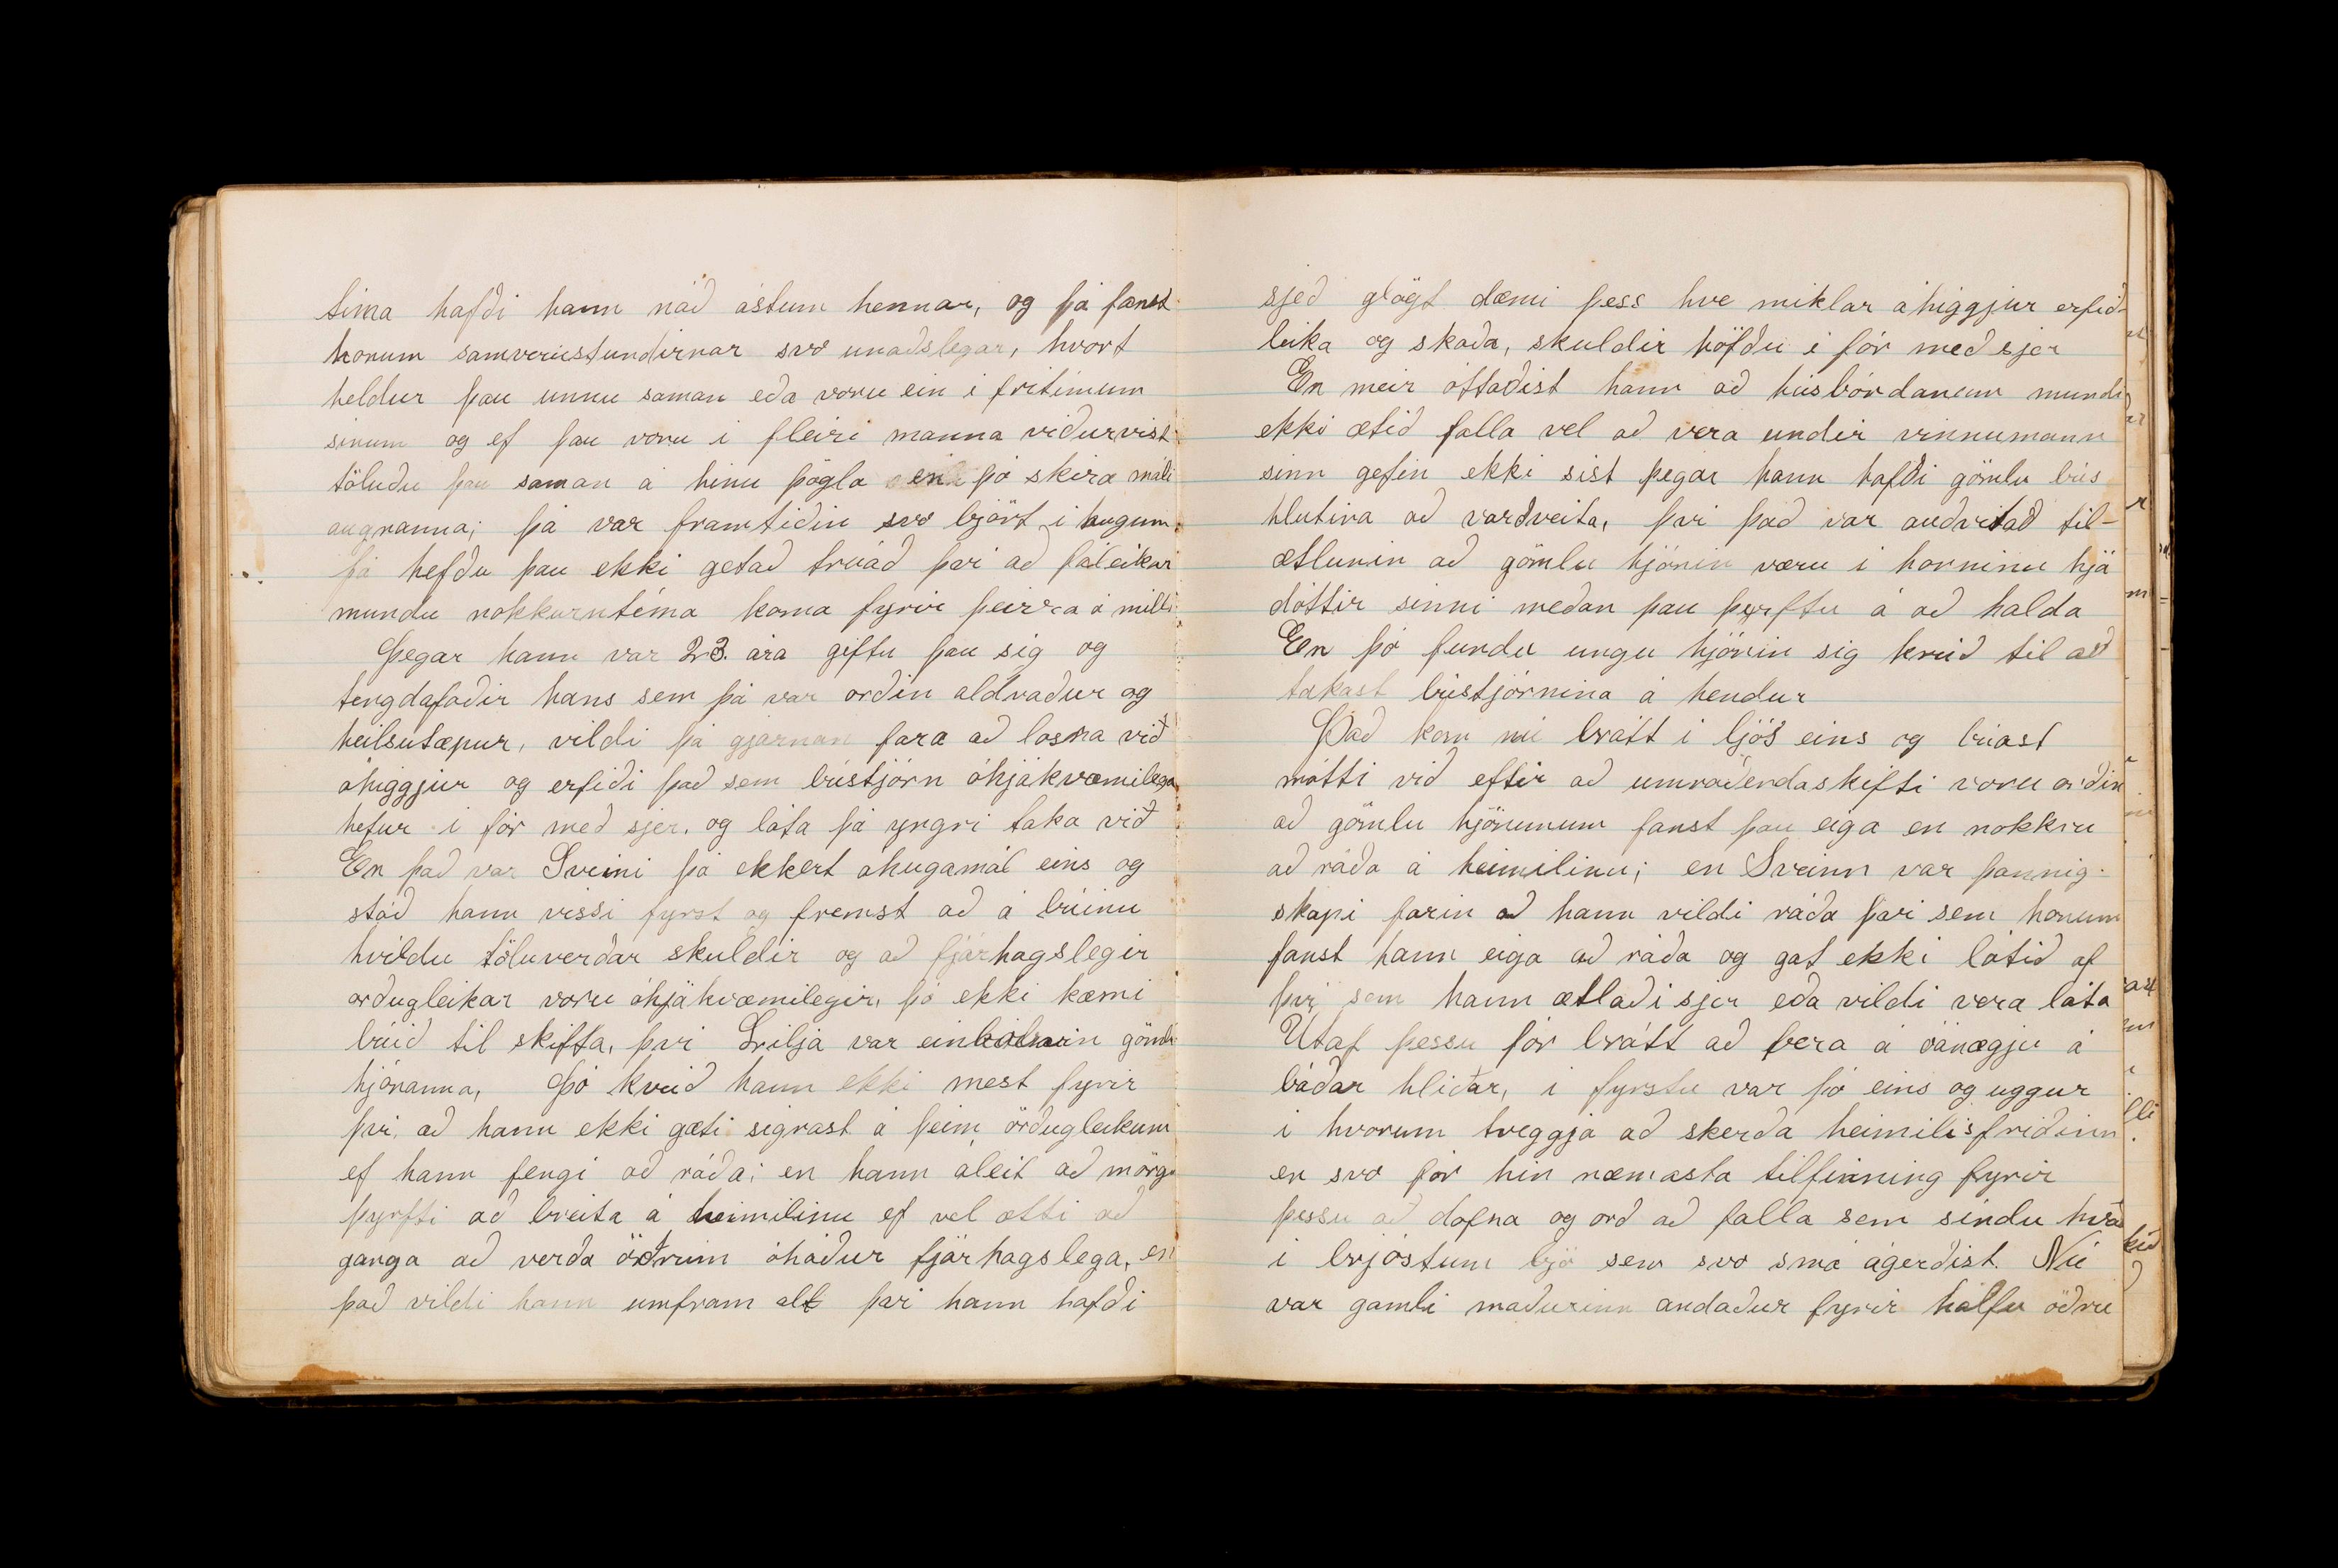 tíma hafði hann náð ástum hennar, og þá fanst
honum samverustundirnar svo unaðslegar, hvort
heldur þau unnu saman eða voru ein í frítímum
sínum og ef þau voru í fleiri manna viðurvist
töluðu þau saman á hinu þögla en þó skíra máli
augnanna; þá var framtíðin svo björt í hugum.
þá hefðu þau ekki getað trúað því að fáleikar
mundu nokkurntíma koma fyrir þeirra á milli
Þegar hann var 23. ára giftu þau sig og
tengdafaðir hans sem þá var orðin aldraður og
heilsutæpur, vildi þá gjarnan fara að losna við
áhiggjur og erfiði það sem bústjórn óhjákvæmilega
hefur í för með sjer, og láta þá yngri taka við
En það var Sveini þá ekkert áhugamál eins og
stóð hann vissi fyrst og fremst að á búinu
hvíldu töluverðar skuldir og að fjárhagslegir
örðugleikar voru óhjákvæmilegir, þó ekki kæmi
búið til skifta, því Lilja var einbirni gömlu
hjónanna, Þó kveið hann ekki mest fyrir
því, að hann ekki gæti sigrast á þeim örðugleikum
ef hann fengi að ráða; en hann áleit að mörgu
þyrfti að breita á heimilinu ef vel ætti að
ganga að verða öðrum óháður fjárhagslega, en
það vildi hann umfram alt því hann hafði
sjeð glögt dæmi þess hve miklar áhiggjur erfið-
leika og skaða, skuldir höfðu í för með sjer
En meir óttaðist hann að húsbóndanum mundi
ekki ætíð falla vel að vera undir vinnumann
sinn gefin ekki síst þegar hann hafði gömlu bús
hlutina að varðveita, því það var auðvitað til-
ætlunin að gömlu hjónin væru í horninu hjá
dóttir sinni meðan þau þyrftu á að halda
En þó fundu ungu hjónin sig knúð til að
takast bústjórnina á hendur
Það kom nú brátt í ljós eins og búast
mátti við eftir að umráðendaskifti voru orðin
að gömlu hjónunum fanst þau eiga en nokkru
að ráða á heimilinu; en Sveinn var þannig
skapi farin að hann vildi ráða því sem honum
fanst hann eiga að ráða og gat ekki látið af
því sem hann ætlaði sjer eða vildi vera láta
Útaf þessu fór brátt að bera á óánægju á
báðar hliðar, í fyrstu var þó eins og uggur
í hvorum tveggja að skerða heimilisfriðinn
en svo fór hin næmasta tilfinning fyrir
þessu að dofna og orð að falla sem síndu hvað
í brjóstum bjó sem svo smá ágerðist. Nú
var gamli maðurinn andaður fyrir hálfu öðru